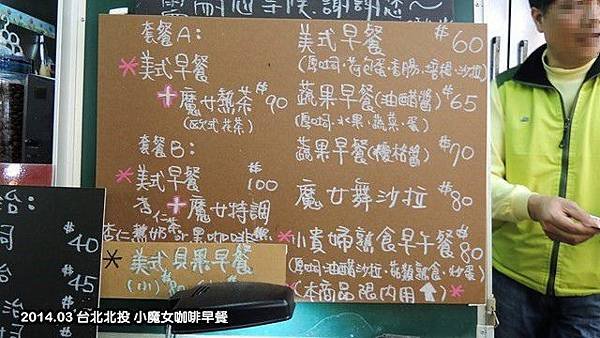 需耐心等候,謝謝您~
套餐A:
*美式早餐
+魔女熱茶 #90
(歐式花茶)
套餐B:
*美式早餐 #100
+魔女特調
杏仁茶
杏仁熱奶or黑咖啡
*美式貝果早餐
(小) #80
美式早餐 #60
(原味吐司.荷包蛋.香腸.沙拉)
蔬果早餐(油醋醬) #65
(原味吐司.水果.蔬菜.蛋)
蔬果早餐(優格醬) #70
魔女舞沙拉 #80
*小貴婦熟食早午餐 #80
(原味吐司.油醋沙拉.菇類熟食.炒蛋)
*(本商品限內用↑)*
治:
司 #40
治 #45
治
2014.03 台北北投 小魔女咖啡早餐